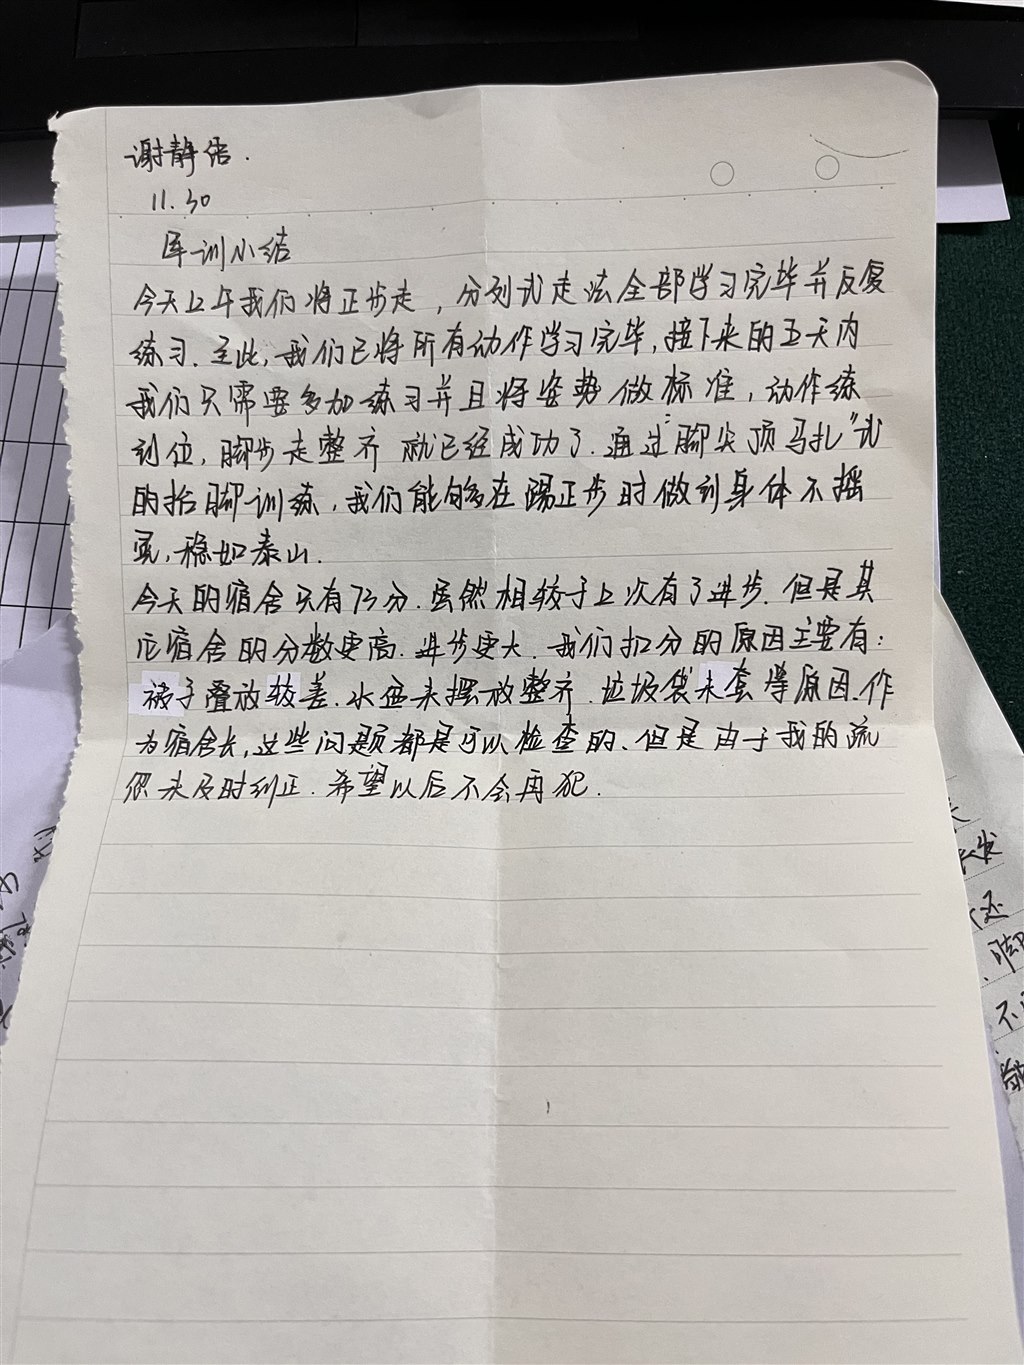 谢静恬.
11.30
军训小结
今天上午我们将正步走，分列式走法全部学习完毕并反复
练习.至此,我们已将所有动作学习完毕,接下来的五天内
我们只需要多加练习并且将姿势做标准，动作练
到位,脚步走整齐就已经成功了.通过"脚尖顶马扎"式
的抬脚训练,我们能够在踢正步时做到身体不摇
晃,稳如泰山.
今天的宿舍只有73分.虽然相较于上次有了进步.但是其
它宿舍的分数更高.进步更大.我们扣分的原因主要有:
被子叠放较差.水壶未摆放整齐.垃圾袋未套等原因.作
为宿舍长,这些问题都是可以检查的.但是由于我的疏
忽未及时纠正.希望以后不会再犯.